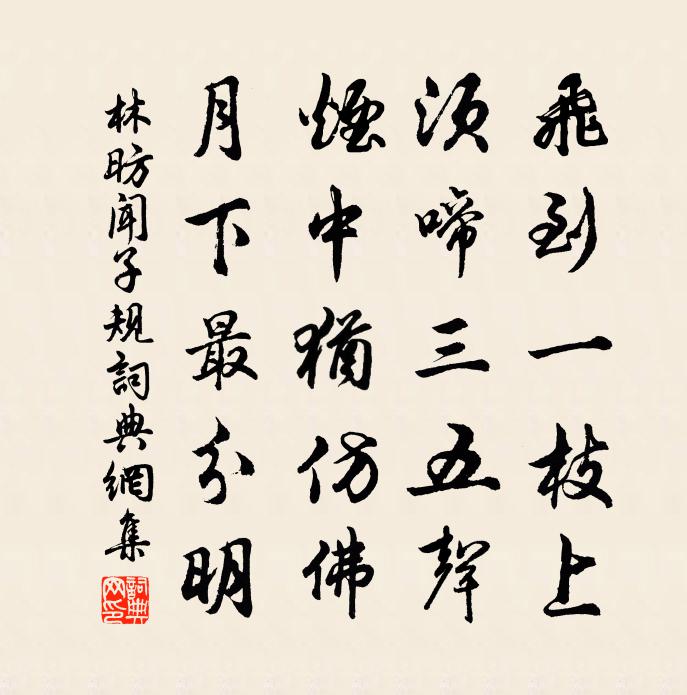 飛到一枝上
須啼三五聲
煙中猶仿佛
月下最分明
林昉聞子規詞典網集
詞典
网印